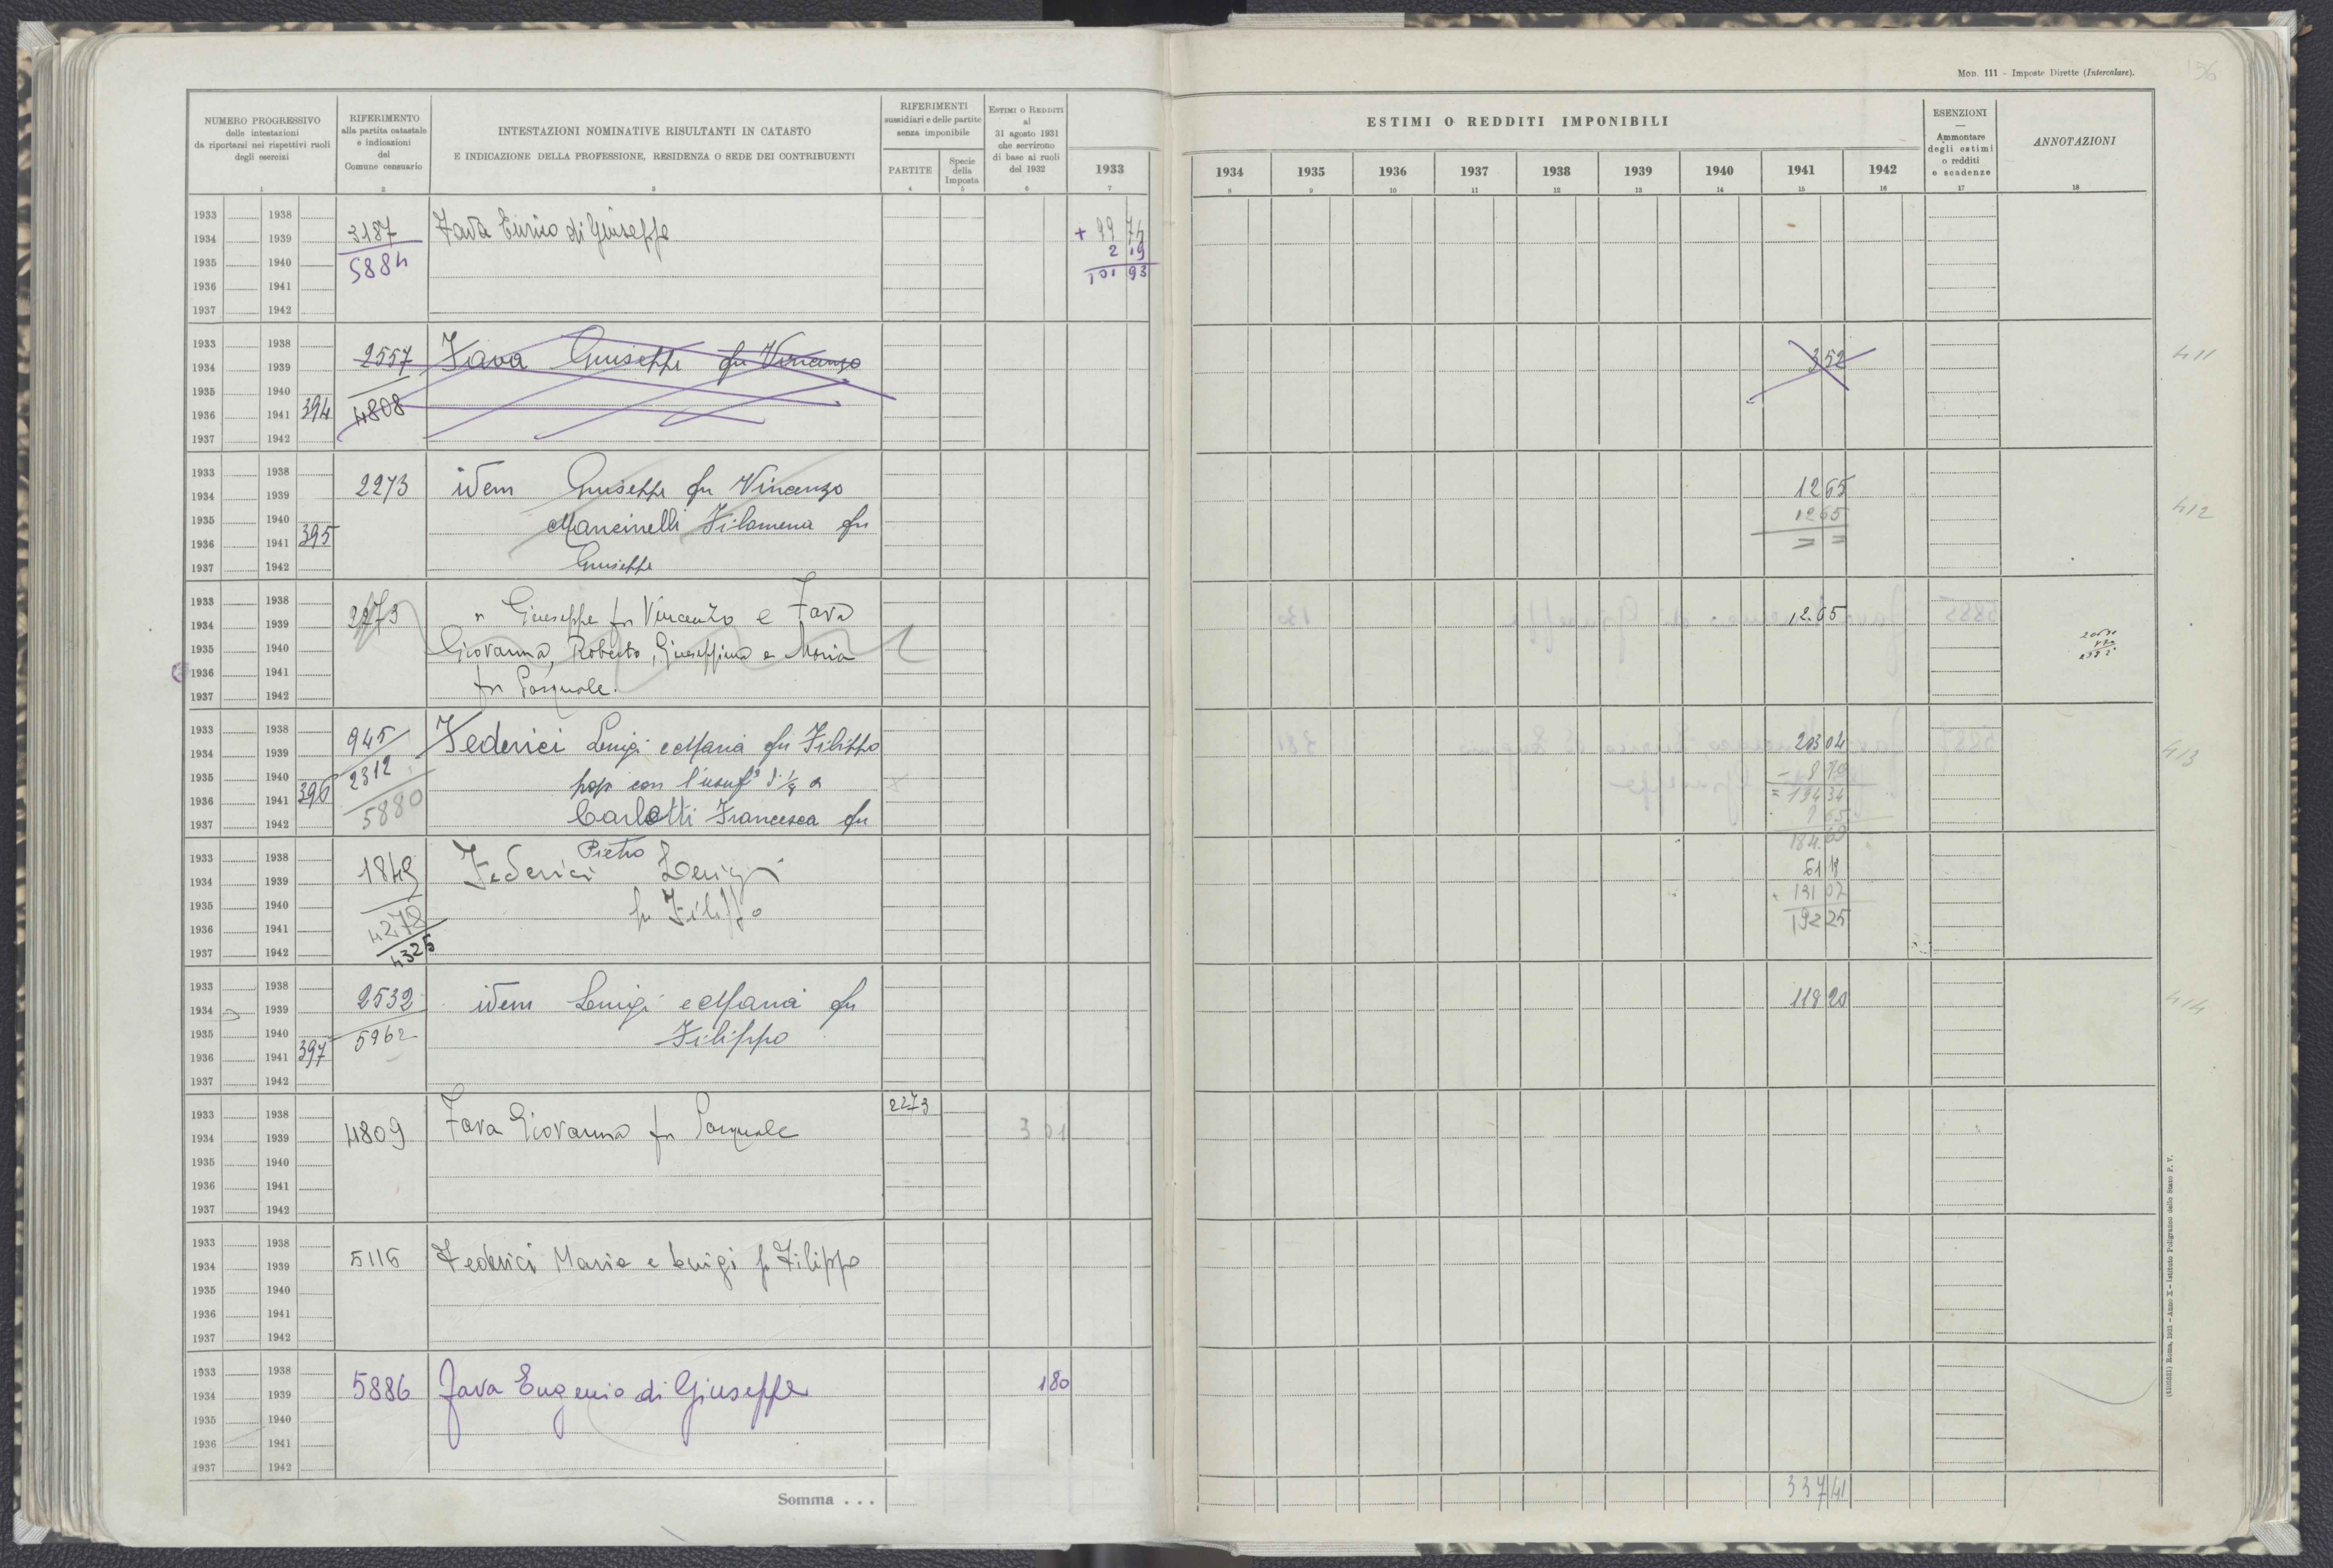 MOD. 111 - Imposte Dirette (Intercalare).
156
NUMERO PROGRESSIVO
delle intestazioni
da riportarsi nei rispettivi ruoli
degli esercizi
1
RIFERIMENTO
alla partita catastale
e indicazioni
del
Comune censuario
2
INTESTAZIONI NOMINATIVE RISULTANTI IN CATASTO
E INDICAZIONE DELLA PROFESSIONE, RESIDENZA O SEDE DEI CONTRIBUENTI
3
RIFERIMENTI
sussidiari e delle partite
senza imponibile
PARTITE
4
Specie
della
Imposta
5
ESTIMI O REDDITI
al
31 agosto 1931
che servirono
di base ai ruoli
del 1932
6
1933
7
ESTIMI O REDDITI IMPONIBILI
1934 1935 1936 1937 1938 1939 1940 1941 1942
8 9 10 11 12 13 14 15 16
ESENZIONI
—
Ammontare
degli estimi
o redditi
e scadenze
17
ANNOTAZIONI
18
1933 1938
1934 1939 3187 Fava Ennio di Giuseppe + 99 74
2 19
1935 1940 5884 101 93
1936 1941
1937 1942
1933 1938
1934 1939 2557 Fava Giuseppe fu Vincenzo 3 52 411
1935 1940
1936 1941 394 4808
1937 1942
1933 1938
1934 1939 2273 idem Giuseppe fu Vincenzo 12 65 412
1935 1940 Mancinelli Filomena fu 12 65
1936 1941 395 = =
1937 1942 Giuseppe
1933 1938
1934 1939 2273 " Giuseppe fu Vincenzo e Fava 12.65
1935 1940 Giovanna, Roberto, Giuseppina e Maria
1936 1941
1937 1942 fu Pasquale.
1933 1938
1934 1939 945 Federici Luigi e Maria fu Filippo 203 04 413
1935 1940 2312 prop con l'usuf° di 1/4 a - 8 70
1936 1941 396 = 194 34
1937 1942 5880 Carlotti Francesca fu 9 65
184.69
1933 1938 Pietro
1934 1939 1849 Federici Luigi 61 18
1935 1940 fu Filippo 131 07
1936 1941 4278 192 25
1937 1942 4325
1933 1938
1934 1939 2532 idem Luigi e Maria fu 118 20 414
1935 1940 5962 Filippo
1936 1941 397
1937 1942
1933 1938 2273
1934 1939 4809 Fava Giovanna fu Pasquale 3 01
1935 1940
1936 1941
1937 1942
1933 1938
1934 1939 5116 Federici Maria e Luigi fu Filippo
1935 1940
1936 1941
1937 1942
1933 1938
1934 1939 5886 Fava Eugenio di Giuseppe 1 80
1935 1940
1936 1941
1937 1942
Somma . . . 337 41
Roma, 1931 - Anno X - Istituto Poligrafico dello Stato P. V.